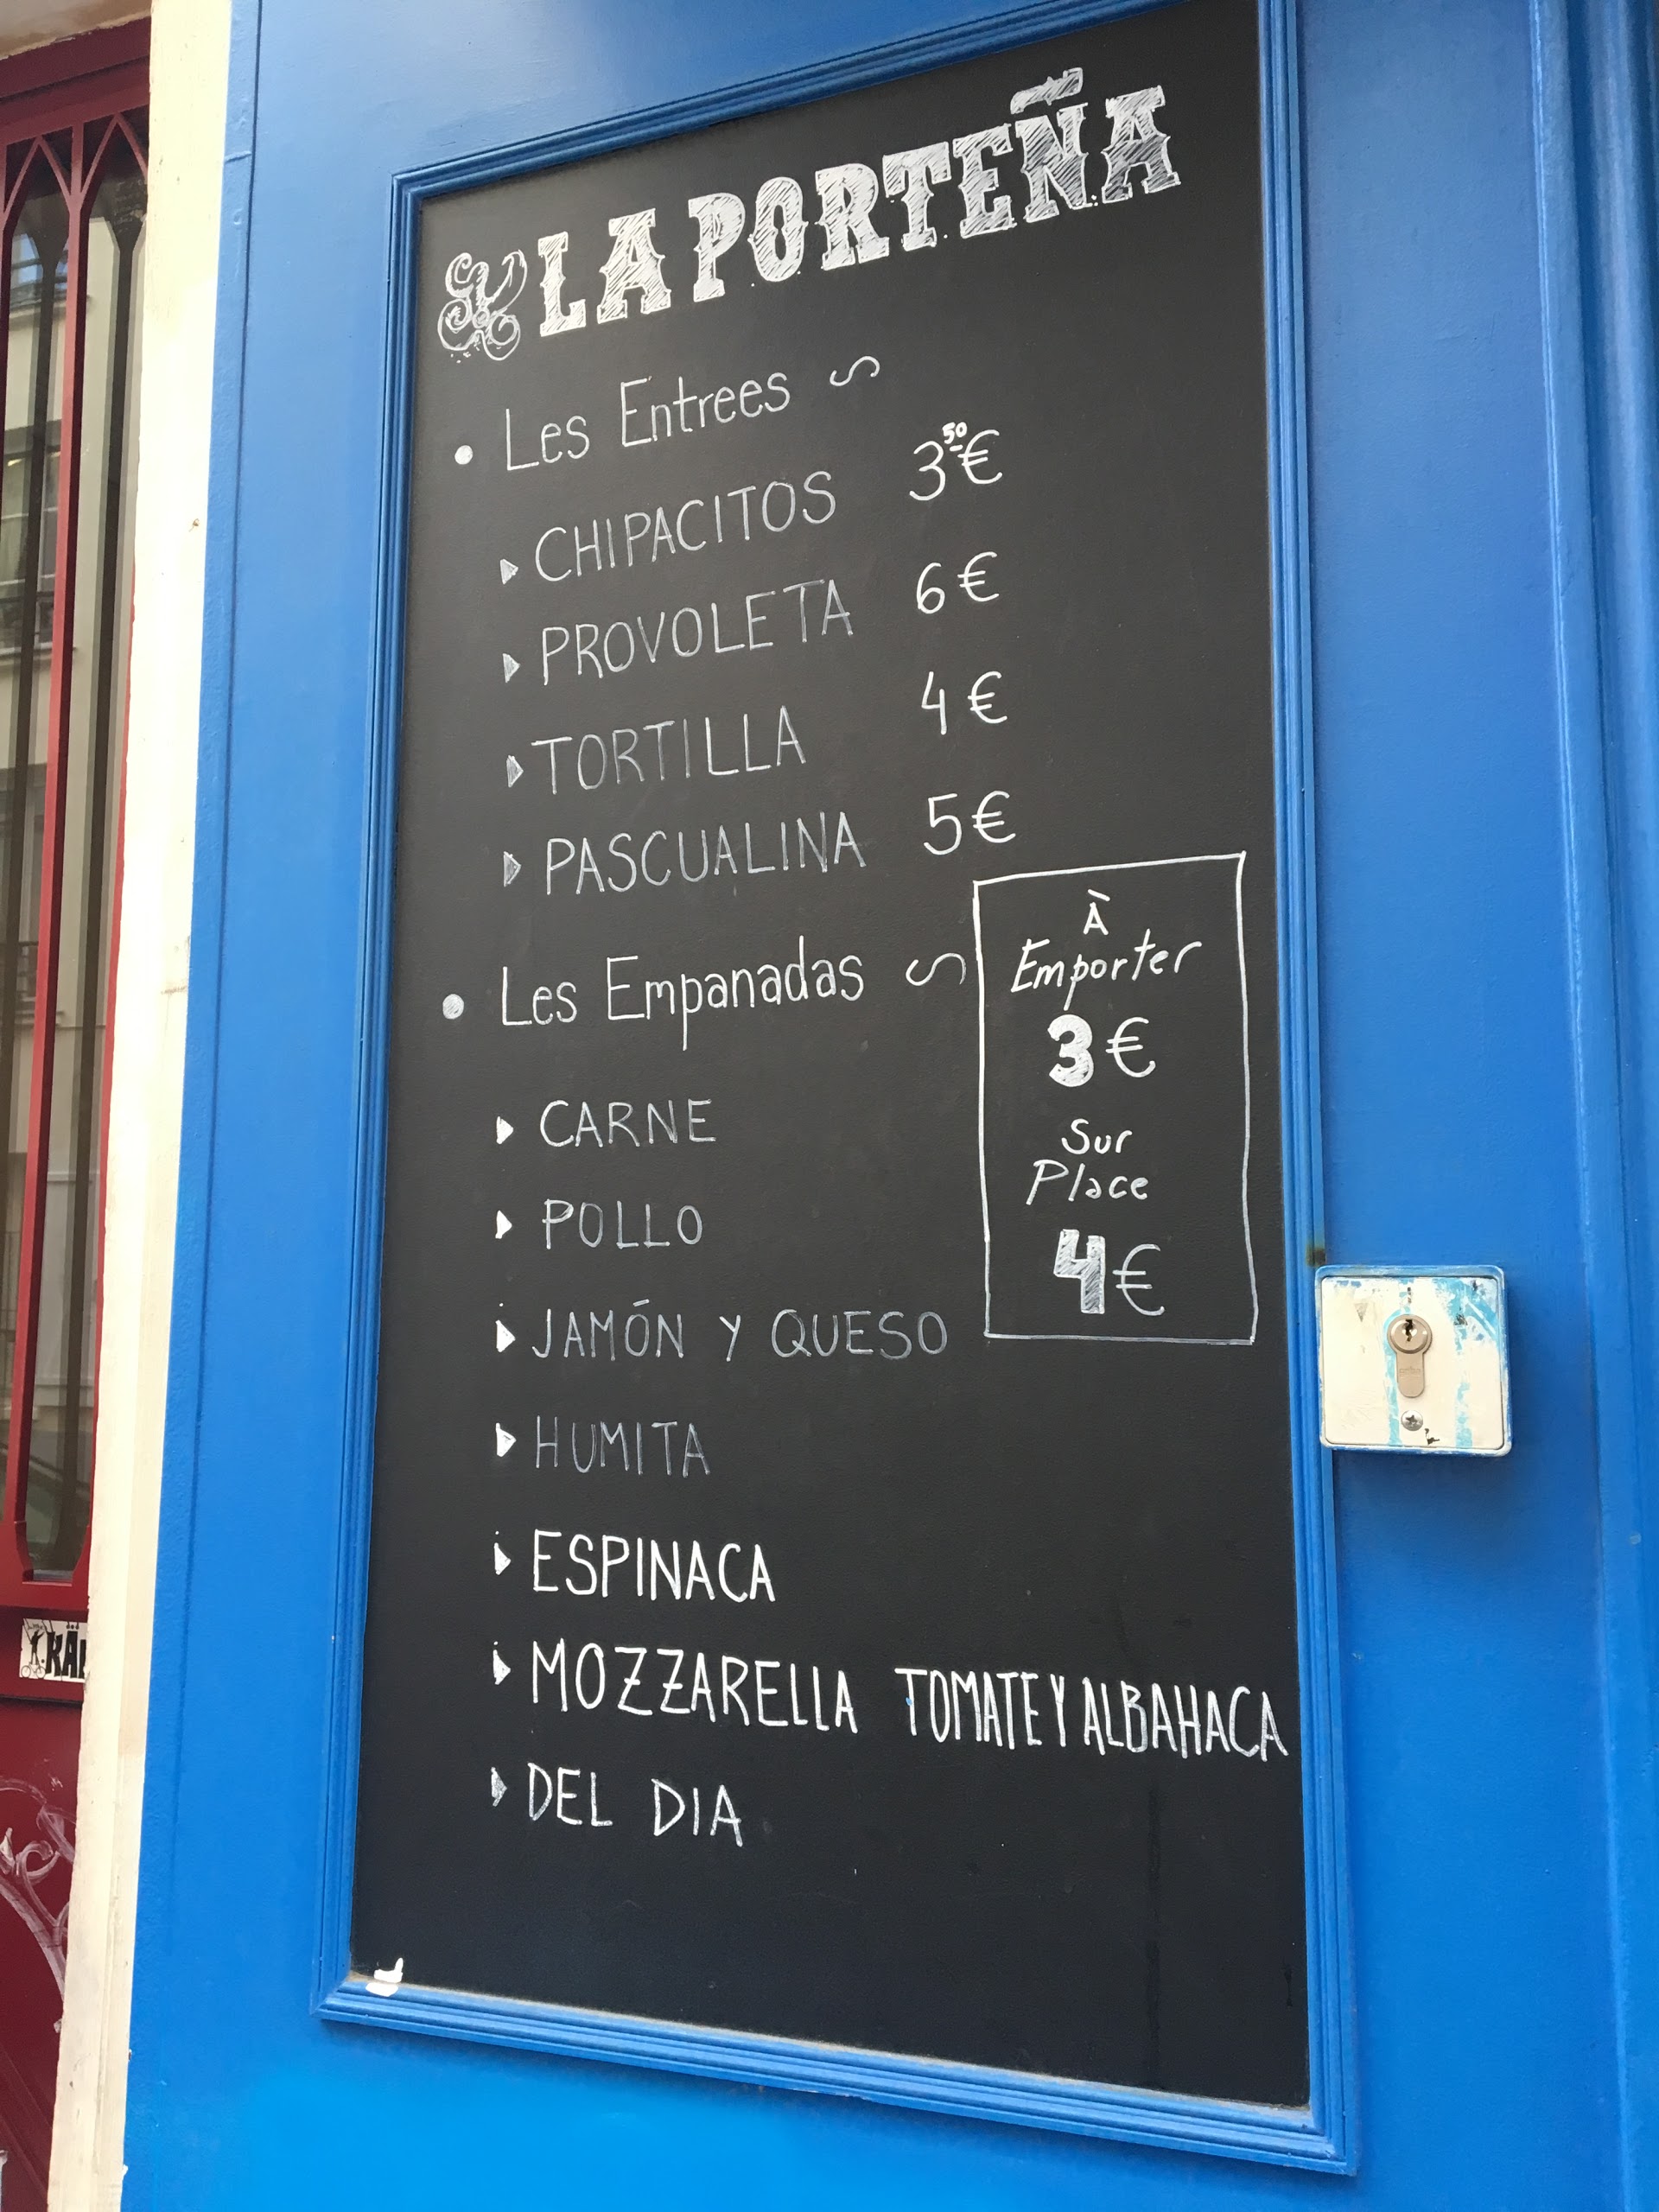 LA PORTEÑA
• Les Entrees
CHIPACITOS 3 50 €
PROVOLETA 6 €
TORTILLA 4 €
PASCUALINA 5 €
• Les Empanadas
CARNE
POLLO
JAMÓN Y QUESO
HUMITA
ESPINACA
MOZZARELLA TOMATE Y ALBAHACA
DEL DIA
À
Emporter
3 €
Sur
Place
4 €